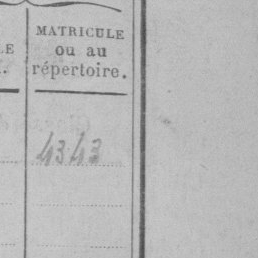 MATRICULE
LE ou au
. répertoire.
4343